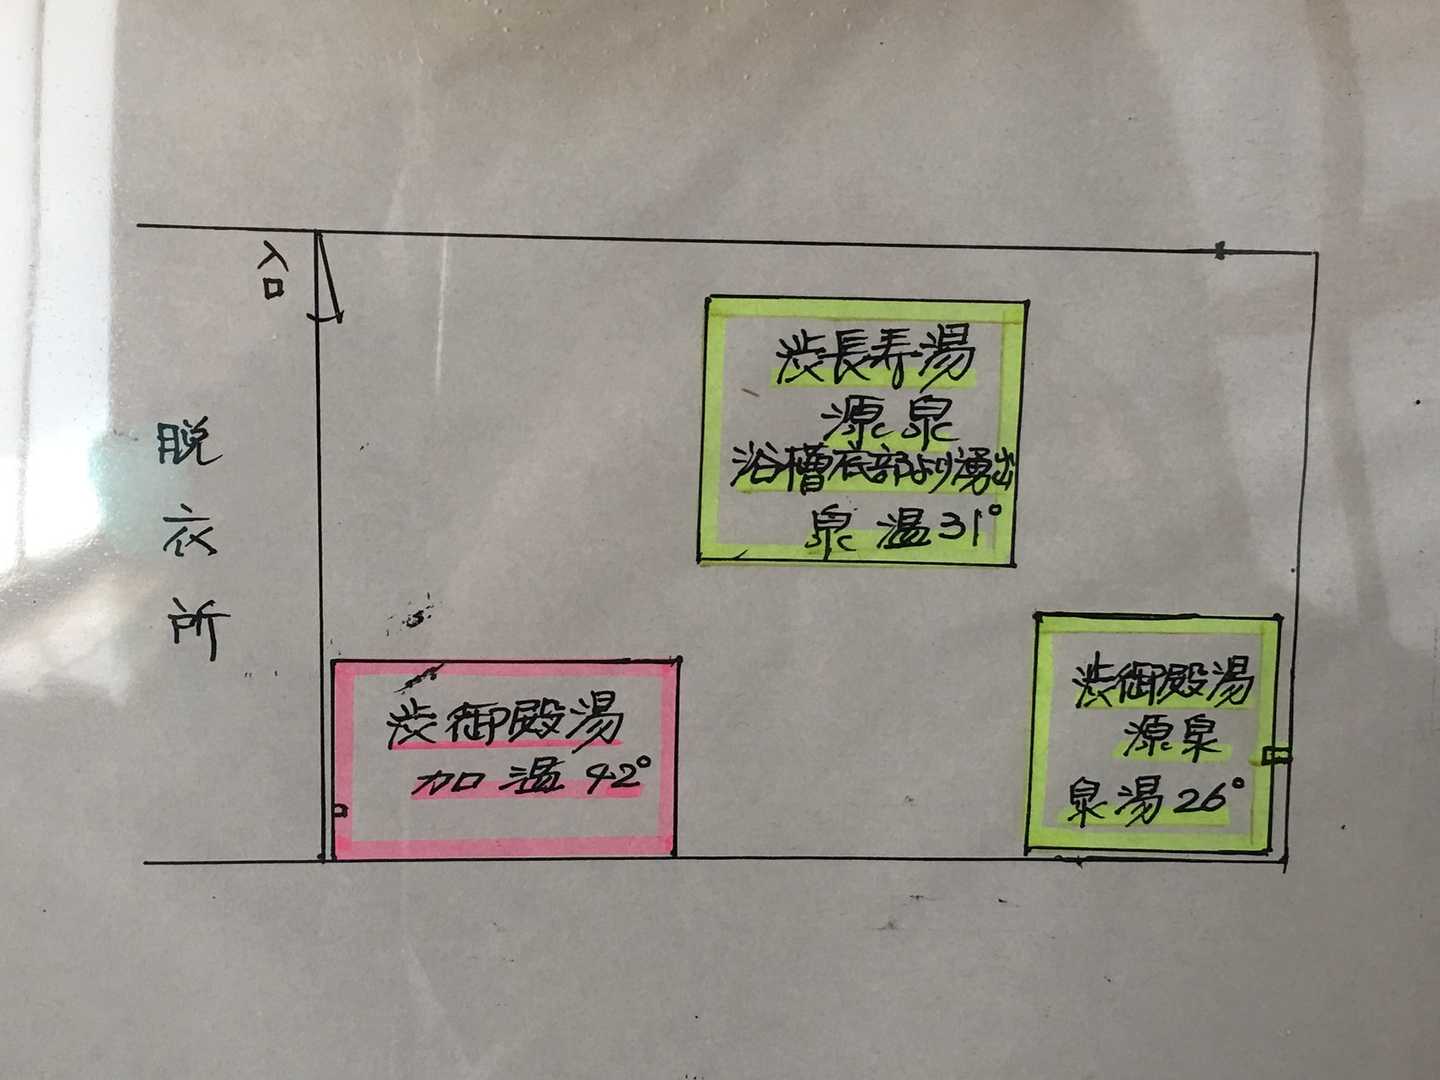 入口
脱衣所
渋長寿湯
源泉
浴槽底部より湧出
泉温31°
渋御殿湯
加温42°
渋御殿湯
源泉
泉湯26°